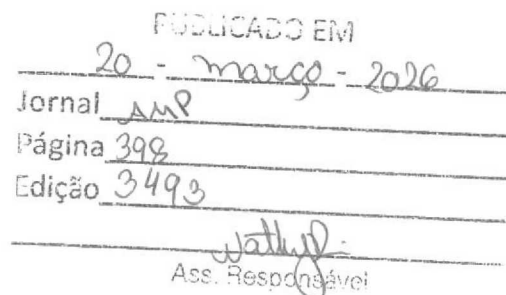 PUBLICADO EM
20 - março - 2026
Jornal AMP
Página 398
Edição 3493
Ass. Responsável